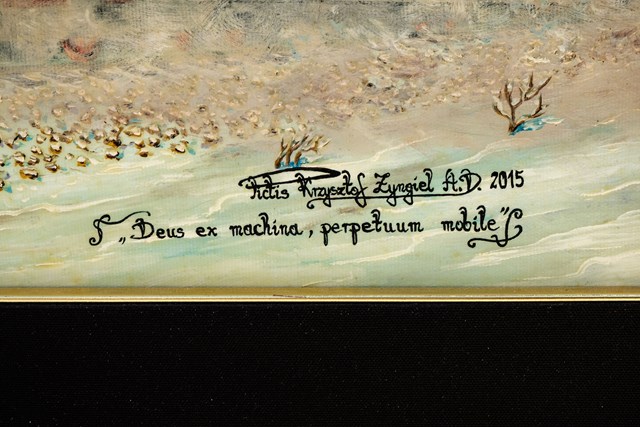 Fictis Krzysztof Żyngiel A.D. 2015
„Deus ex machina, perpetuum mobile”